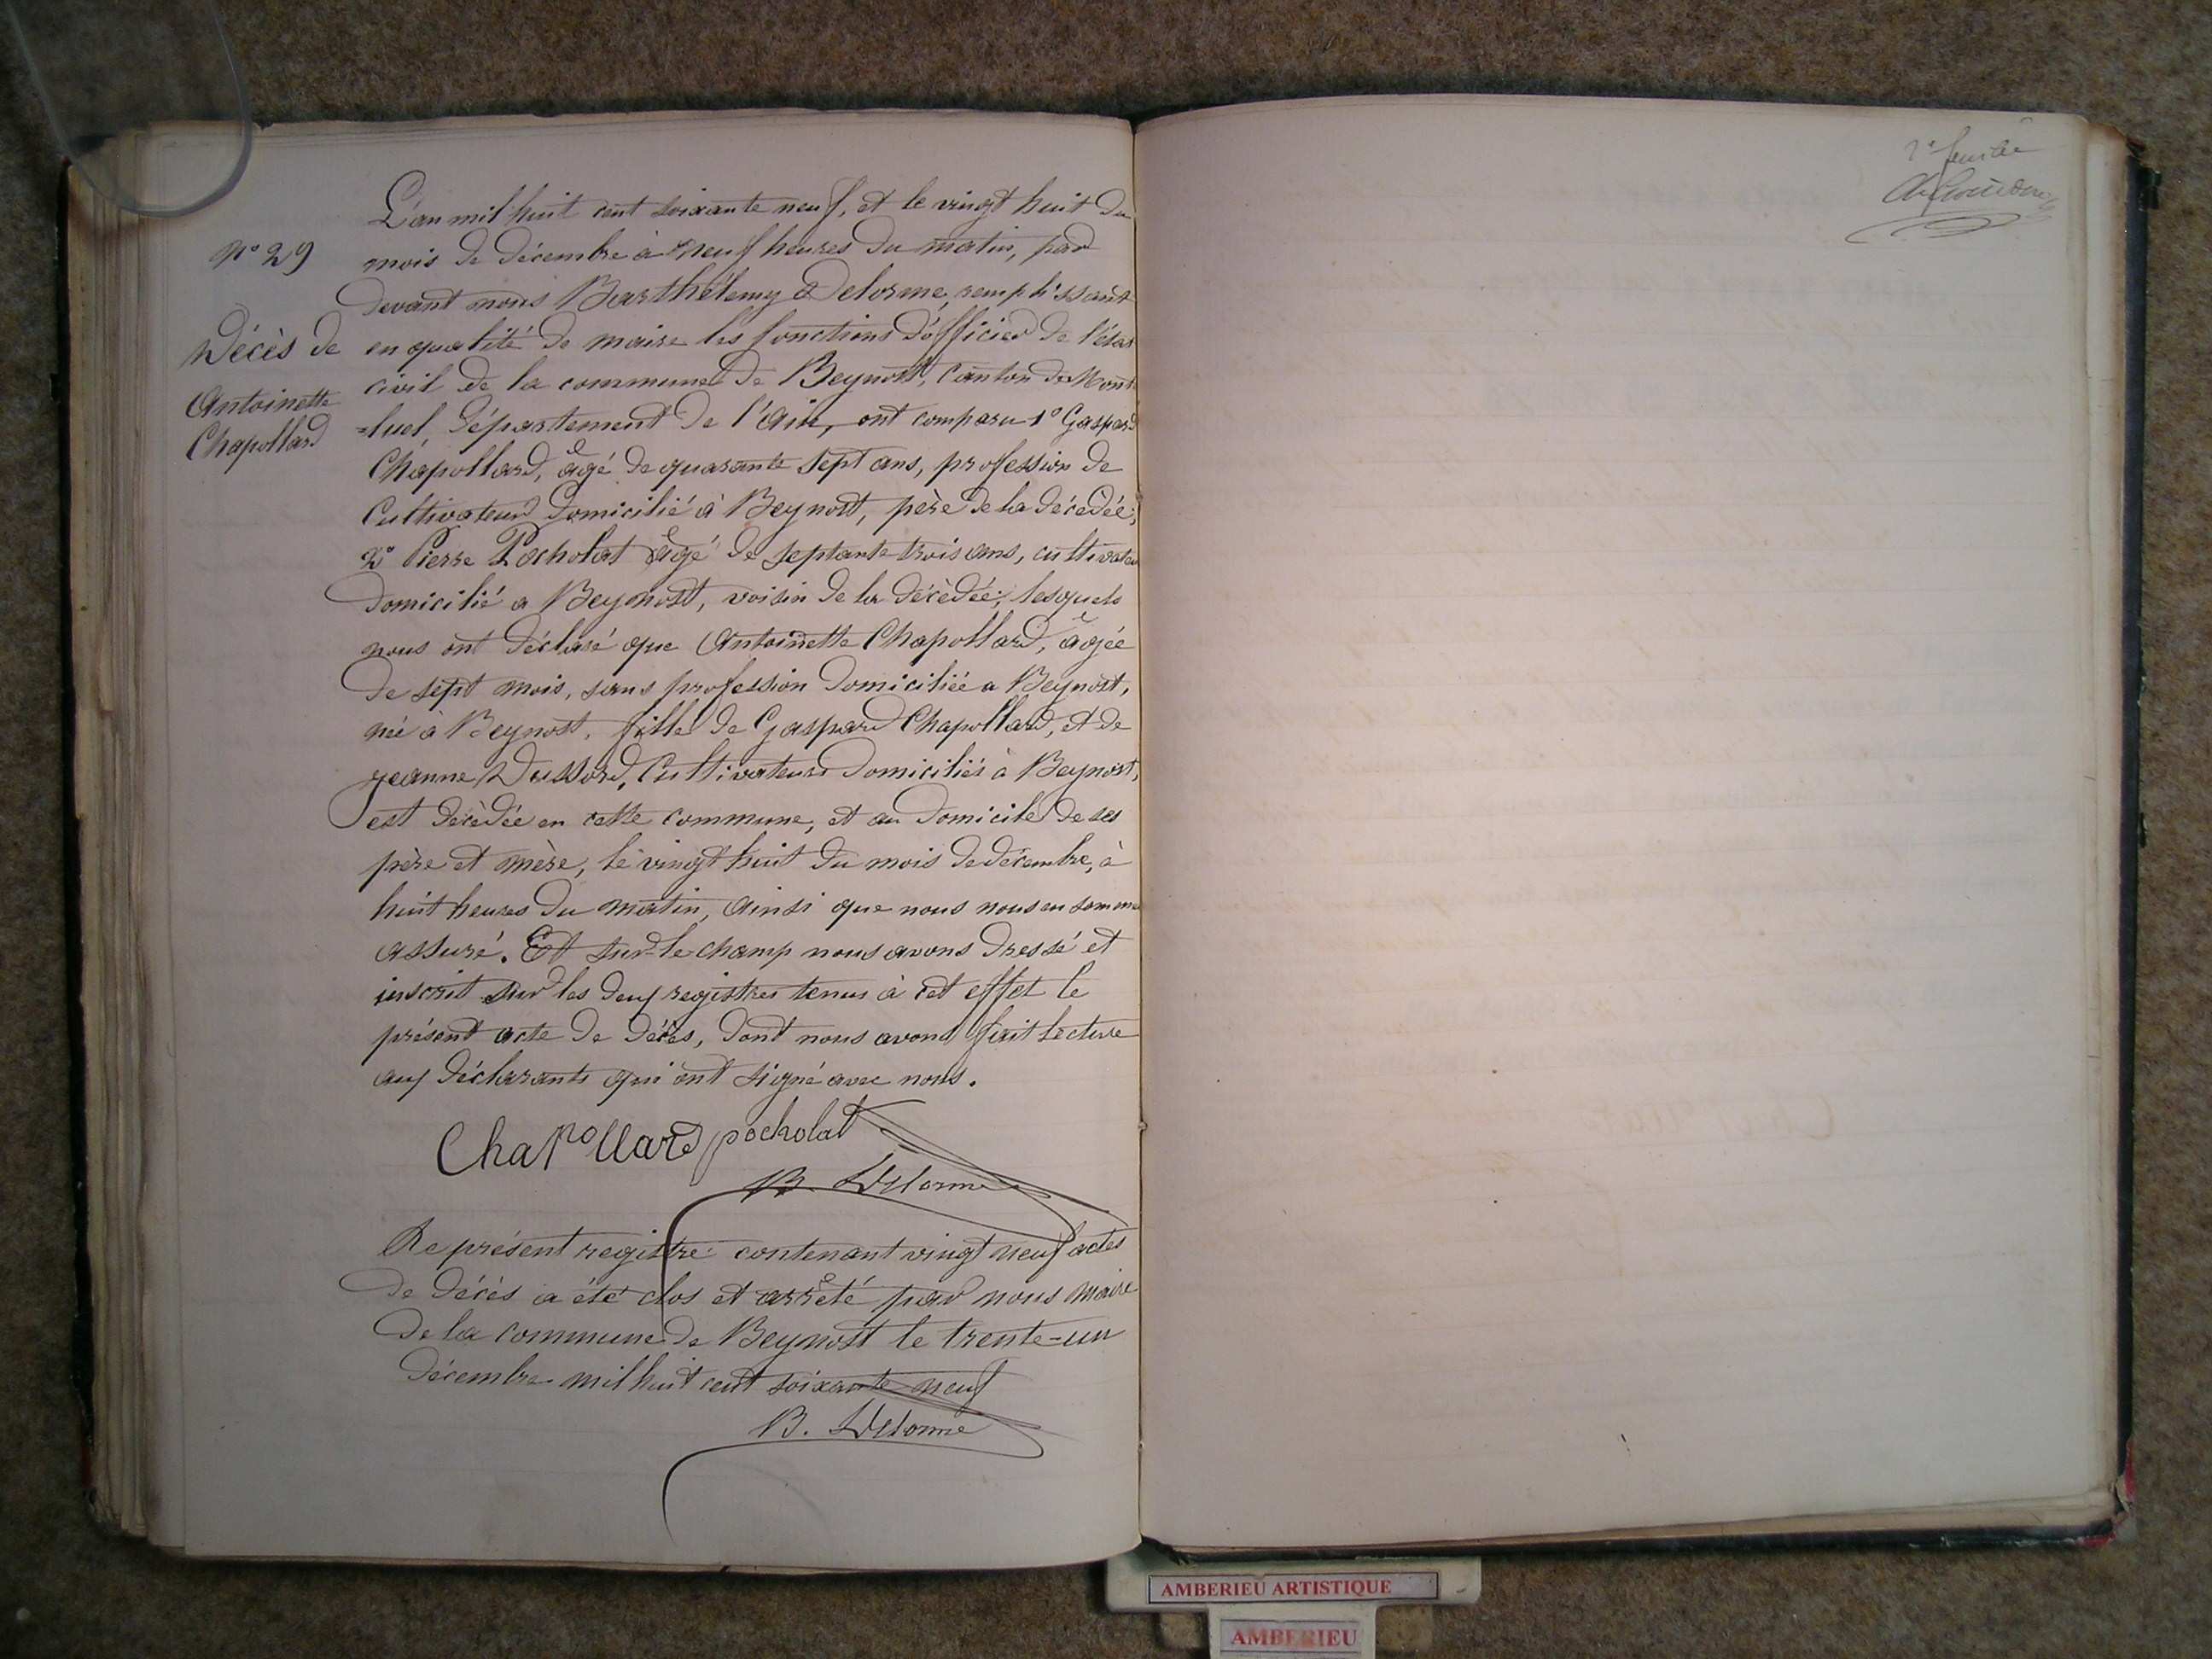 N° 29
Décès de
Antoinette
Chapollard
L'an mil huit cent soixante neuf, et le vingt huit du
mois de décembre à neuf heures du matin, par
devant nous Barthélemy Delorme, remplissant
en qualité de maire les fonctions d'officier de l'état
civil de la commune de Beynost, canton de Mont
=luel, département de l'Ain, ont comparu 1° Gaspard
Chapollard, âgé de quarante sept ans, profession de
Cultivateur domicilié à Beynost, père de la décédée;
2° Pierre Pocholat âgé de septante trois ans, cultivateur
domicilié a Beynost, voisin de la décèdée; lesquels
nous ont déclaré que Antoinette Chapollard, âgée
de sept mois, sans profession domiciliée a Beynost,
née à Beynost, fille de Gaspard Chapollard, et de
jeanne Dussord, Cultivateurs domiciliés à Beynost,
est décèdée en cette commune, et au domicile de ses
père et mère, le vingt huit du mois de décembre, à
huit heures du matin, ainsi que nous nous en somme
assuré. Et sur-le champ nous avons dressé et
inscrit sur les deux registres tenus à cet effet le
présent acte de décès, dont nous avons fait lecture
aux déclarants qui ont signé avec nous.
Chapollard pocholat
B. Delorme
Le présent registre contenant vingt neuf actes
de décés a été clos et arrêté par nous maire
de la commune de Beynost le trente-un
décembre mil huit cent soixante neuf
B. Delorme
feuille
AMBERIEU ARTISTIQUE
AMBERIEU